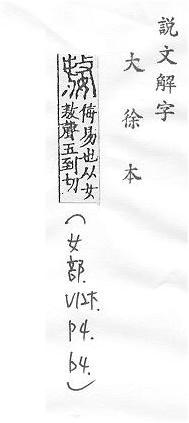 説文解字
大徐本
嫯
侮易也从女
敖聲五到切
(女部. V12下. P4. b4.)